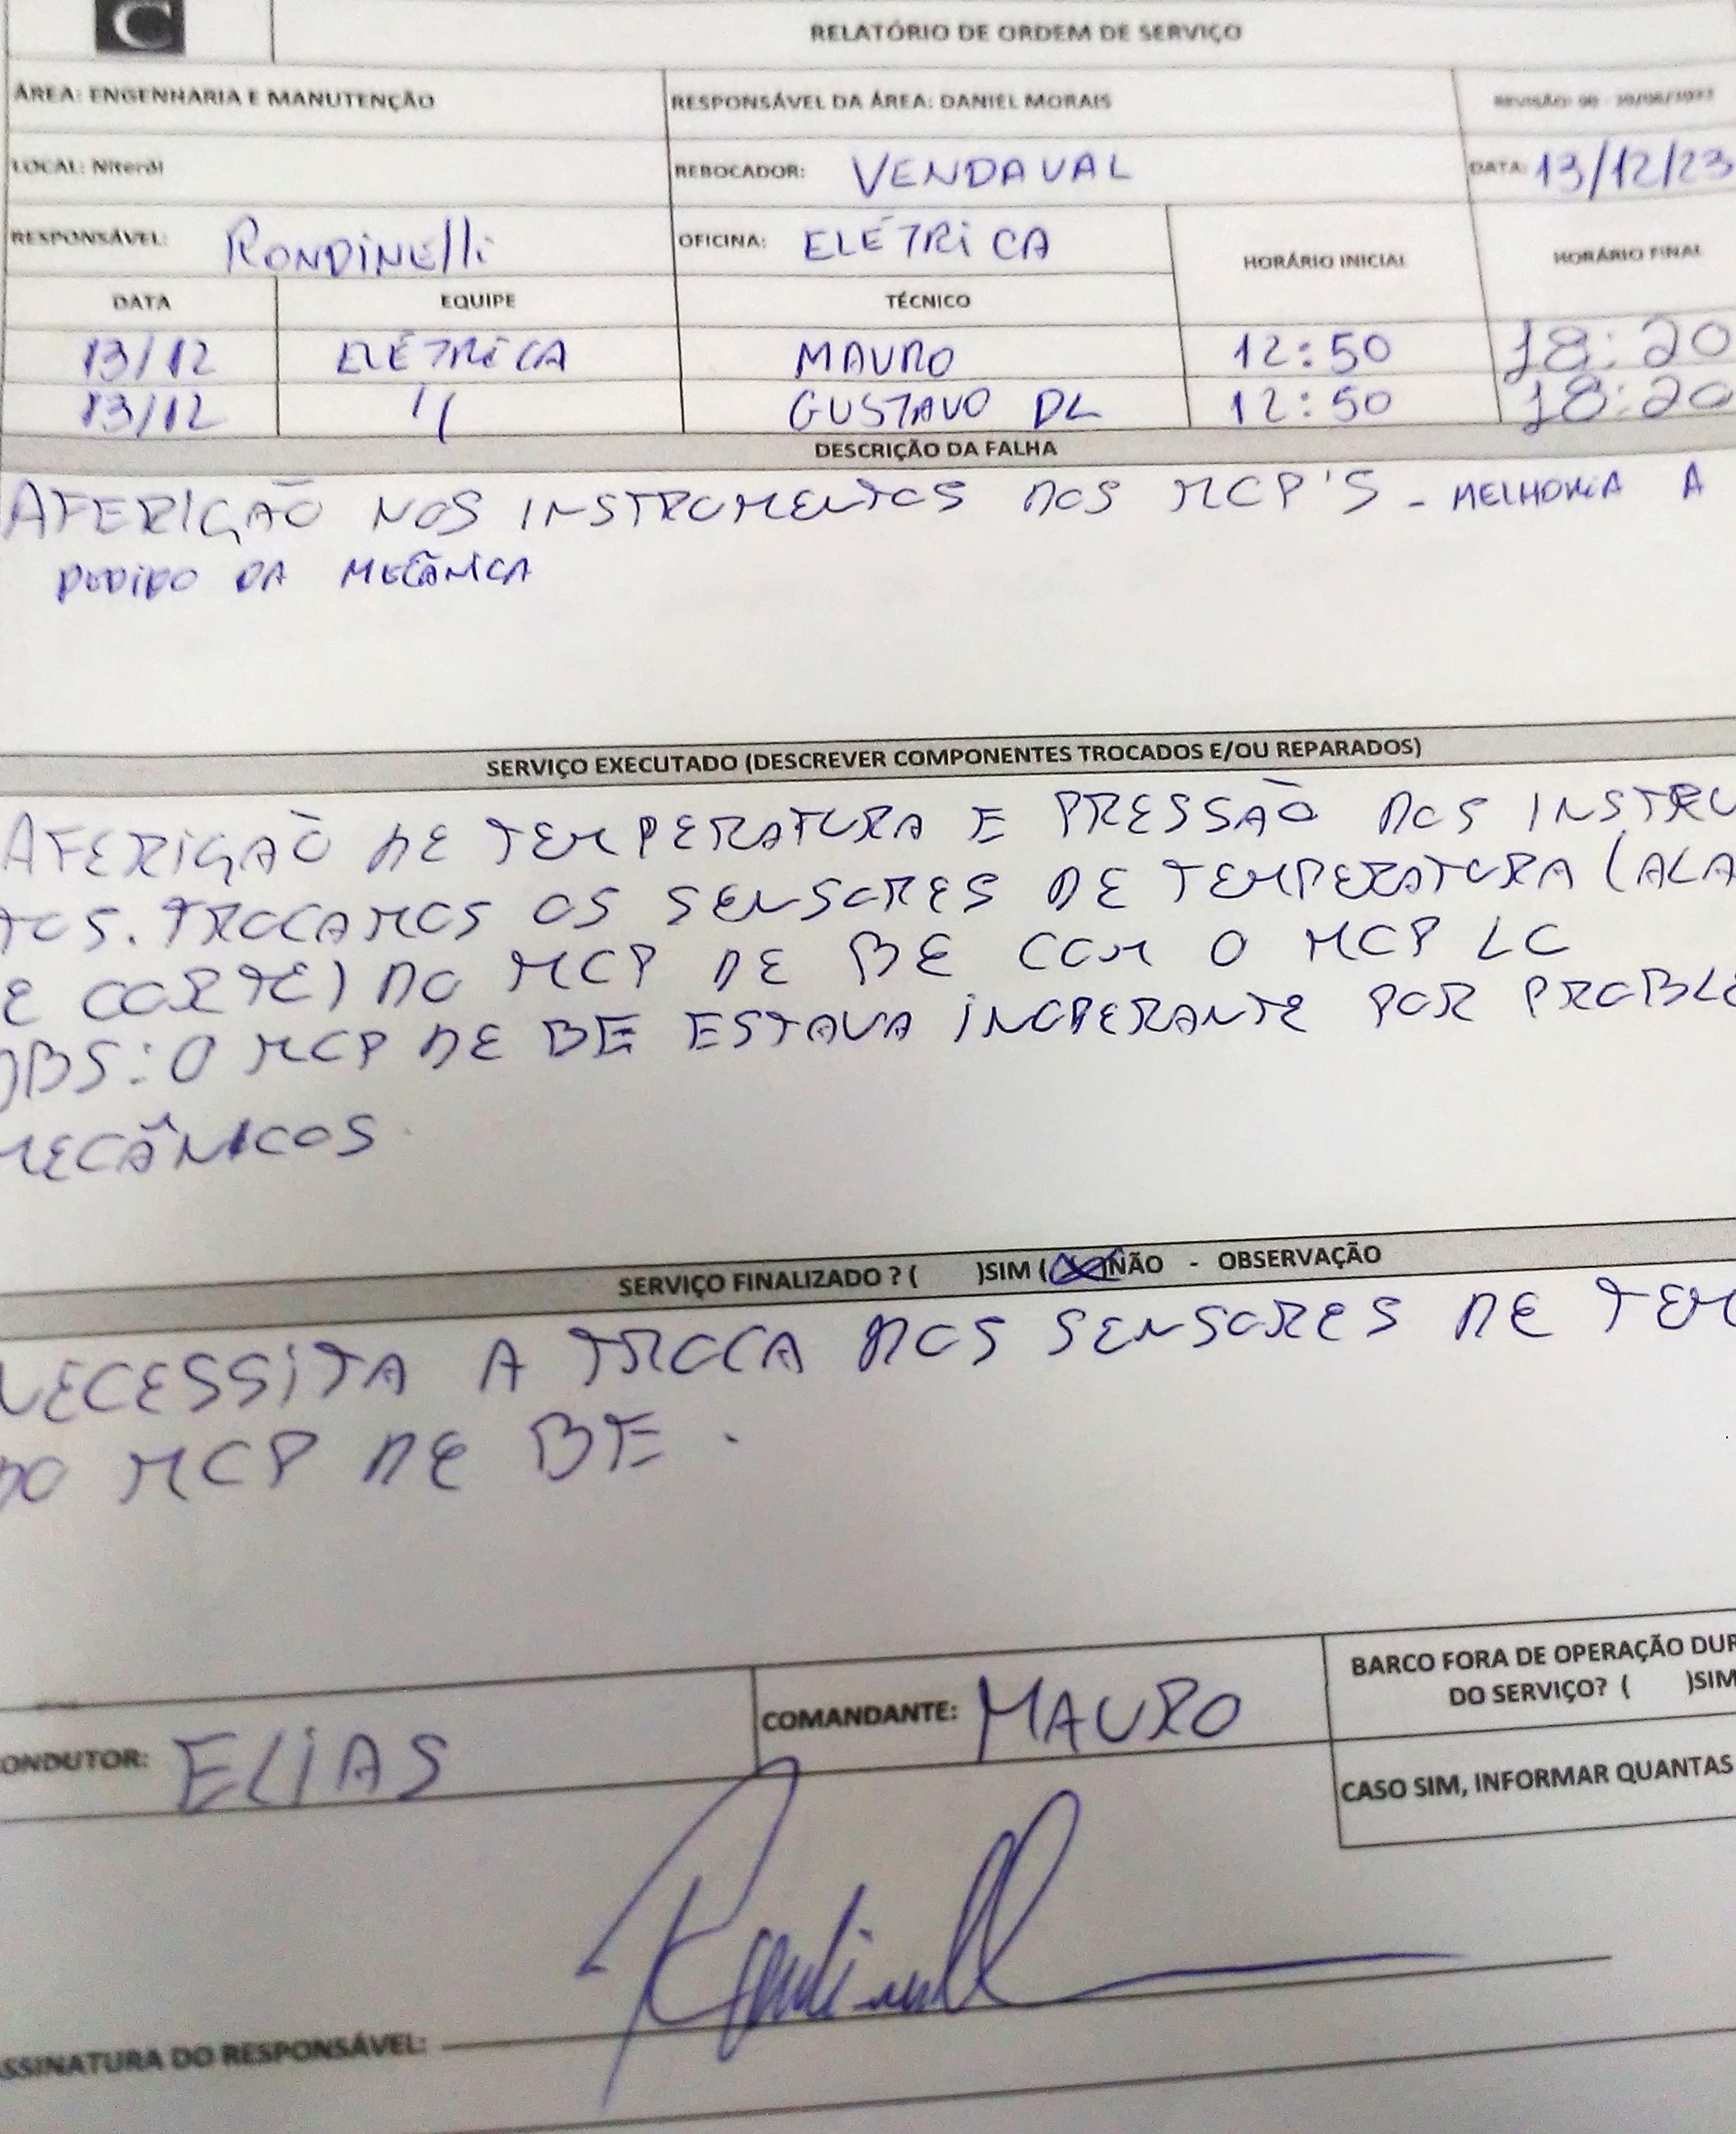 C
RELATÓRIO DE ORDEM DE SERVIÇO
ÁREA: ENGENHARIA E MANUTENÇÃO RESPONSÁVEL DA ÁREA: DANIEL MORAIS REVISÃO: 00
LOCAL: Niterói REBOCADOR: VENDAVAL DATA: 13/12/23
RESPONSÁVEL: RONDINElli OFICINA: ELÉTRiCA HORÁRIO INICIAL HORÁRIO FINAL
DATA EQUIPE TÉCNICO
13/12 ELÉTRiCA MAURO 12:50 18:20
13/12 11 GUSTAVO DL 12:50 18:20
DESCRIÇÃO DA FALHA
AFERIÇÃO NOS INSTRUMENTOS DOS MCP'S - MELHORIA A
PEDIDO DA MECÂNICA
SERVIÇO EXECUTADO (DESCREVER COMPONENTES TROCADOS E/OU REPARADOS)
AFERIÇÃO DE TEMPERATURA E PRESSÃO DOS INSTRU
TOS. TROCAMOS OS SENSORES DE TEMPERATURA (ALA
E CORTE) DO MCP DE BE COM O MCP
OBS: O MCP DE BE ESTAVA INOPERANTE POR PROBLE
MECÂNICOS
SERVIÇO FINALIZADO ? ( )SIM (X)NÃO - OBSERVAÇÃO
NECESSITA A TROCA DOS SENSORES DE TEM
DO MCP DE BE.
ONDUTOR: ELIAS COMANDANTE: MAURO BARCO FORA DE OPERAÇÃO DUR
DO SERVIÇO? ( )SIM
CASO SIM, INFORMAR QUANTAS
SSINATURA DO RESPONSÁVEL: Rondinelli